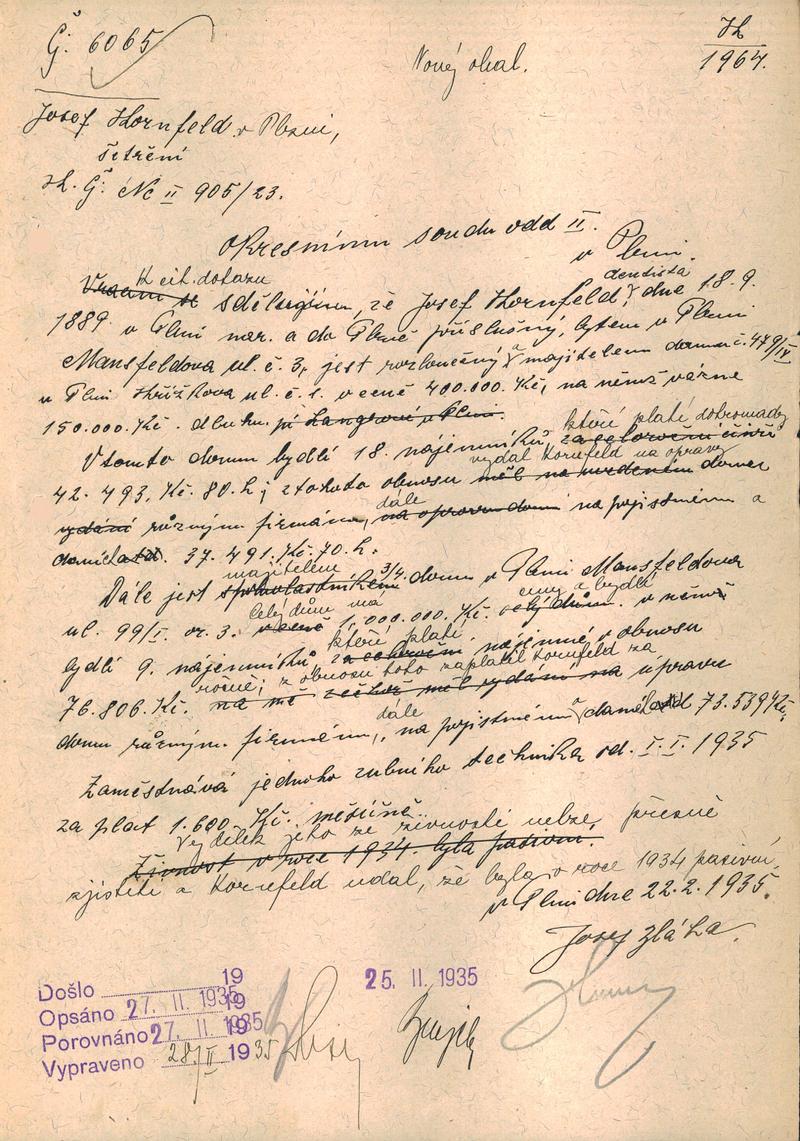 Č: 6065
Nový obal.
1964.
Josef Kornfeld v Plzni,
šetření
k. č: Nc II 905/23.
Okresnímu soudu odd II.
v Plzni.
Vracím se K cit. dotazu sděluji, že Josef Kornfeld, dentista dne 18.9.
1889 v Plzni nar. a do Plzně příslušný, bytem v Plzni
Mansfeldova ul. č. 3, jest rozloučený a majitelem domu č. 479/IV
v Plzni ul. č. 1. v ceně 400.000. Kč, na němž vázne
150.000. Kč. dluhu. pí Langrové v Plzni.
V tomto domu bydlí 18. nájemníků, za celoroční činži kteří platí dohromady
42.493, Kč. 80. h; z tohoto obnosu měl na uvedeném vydal Kornfeld na opravy domu
vydání různým firmám, na opravu domu dále na pojistném a
daních 37.491. Kč. 70. h.
Dále jest spoluvlastníkem majitelem 3/4. domu v Plzni Mansfeldova
ul. 99/I. or. 3. v ceně Celý dům má 1,000.000. Kč. celý dům. ceny a bydlí v němž
bydlí 9. nájemníků, za celoroční kteří platí nájemné v obnosu
76.806. Kč. na mě měl vydání na ročně; z obnosu toho zaplatil Kornfeld za úpravu
domu různým. firmám, dále na pojistném a daních 73.539 Kč.
Zaměstnává jednoho zubního technika od. I. I. 1935
za plat 1.600 Kč. měsíčně.
Živnost v roce 1934. byla pasivní. Výdělek jeho ze živnosti nelze přesně
zjistiti a Kornfeld udal, že byla v roce 1934 pasivní.
v Plzni dne 22.2.1935.
Josef Zláha.
Došlo 19
Opsáno 27. II. 1935 19
Porovnáno 27. II. 1935 19
Vypraveno 28/II 1935
25. II. 1935